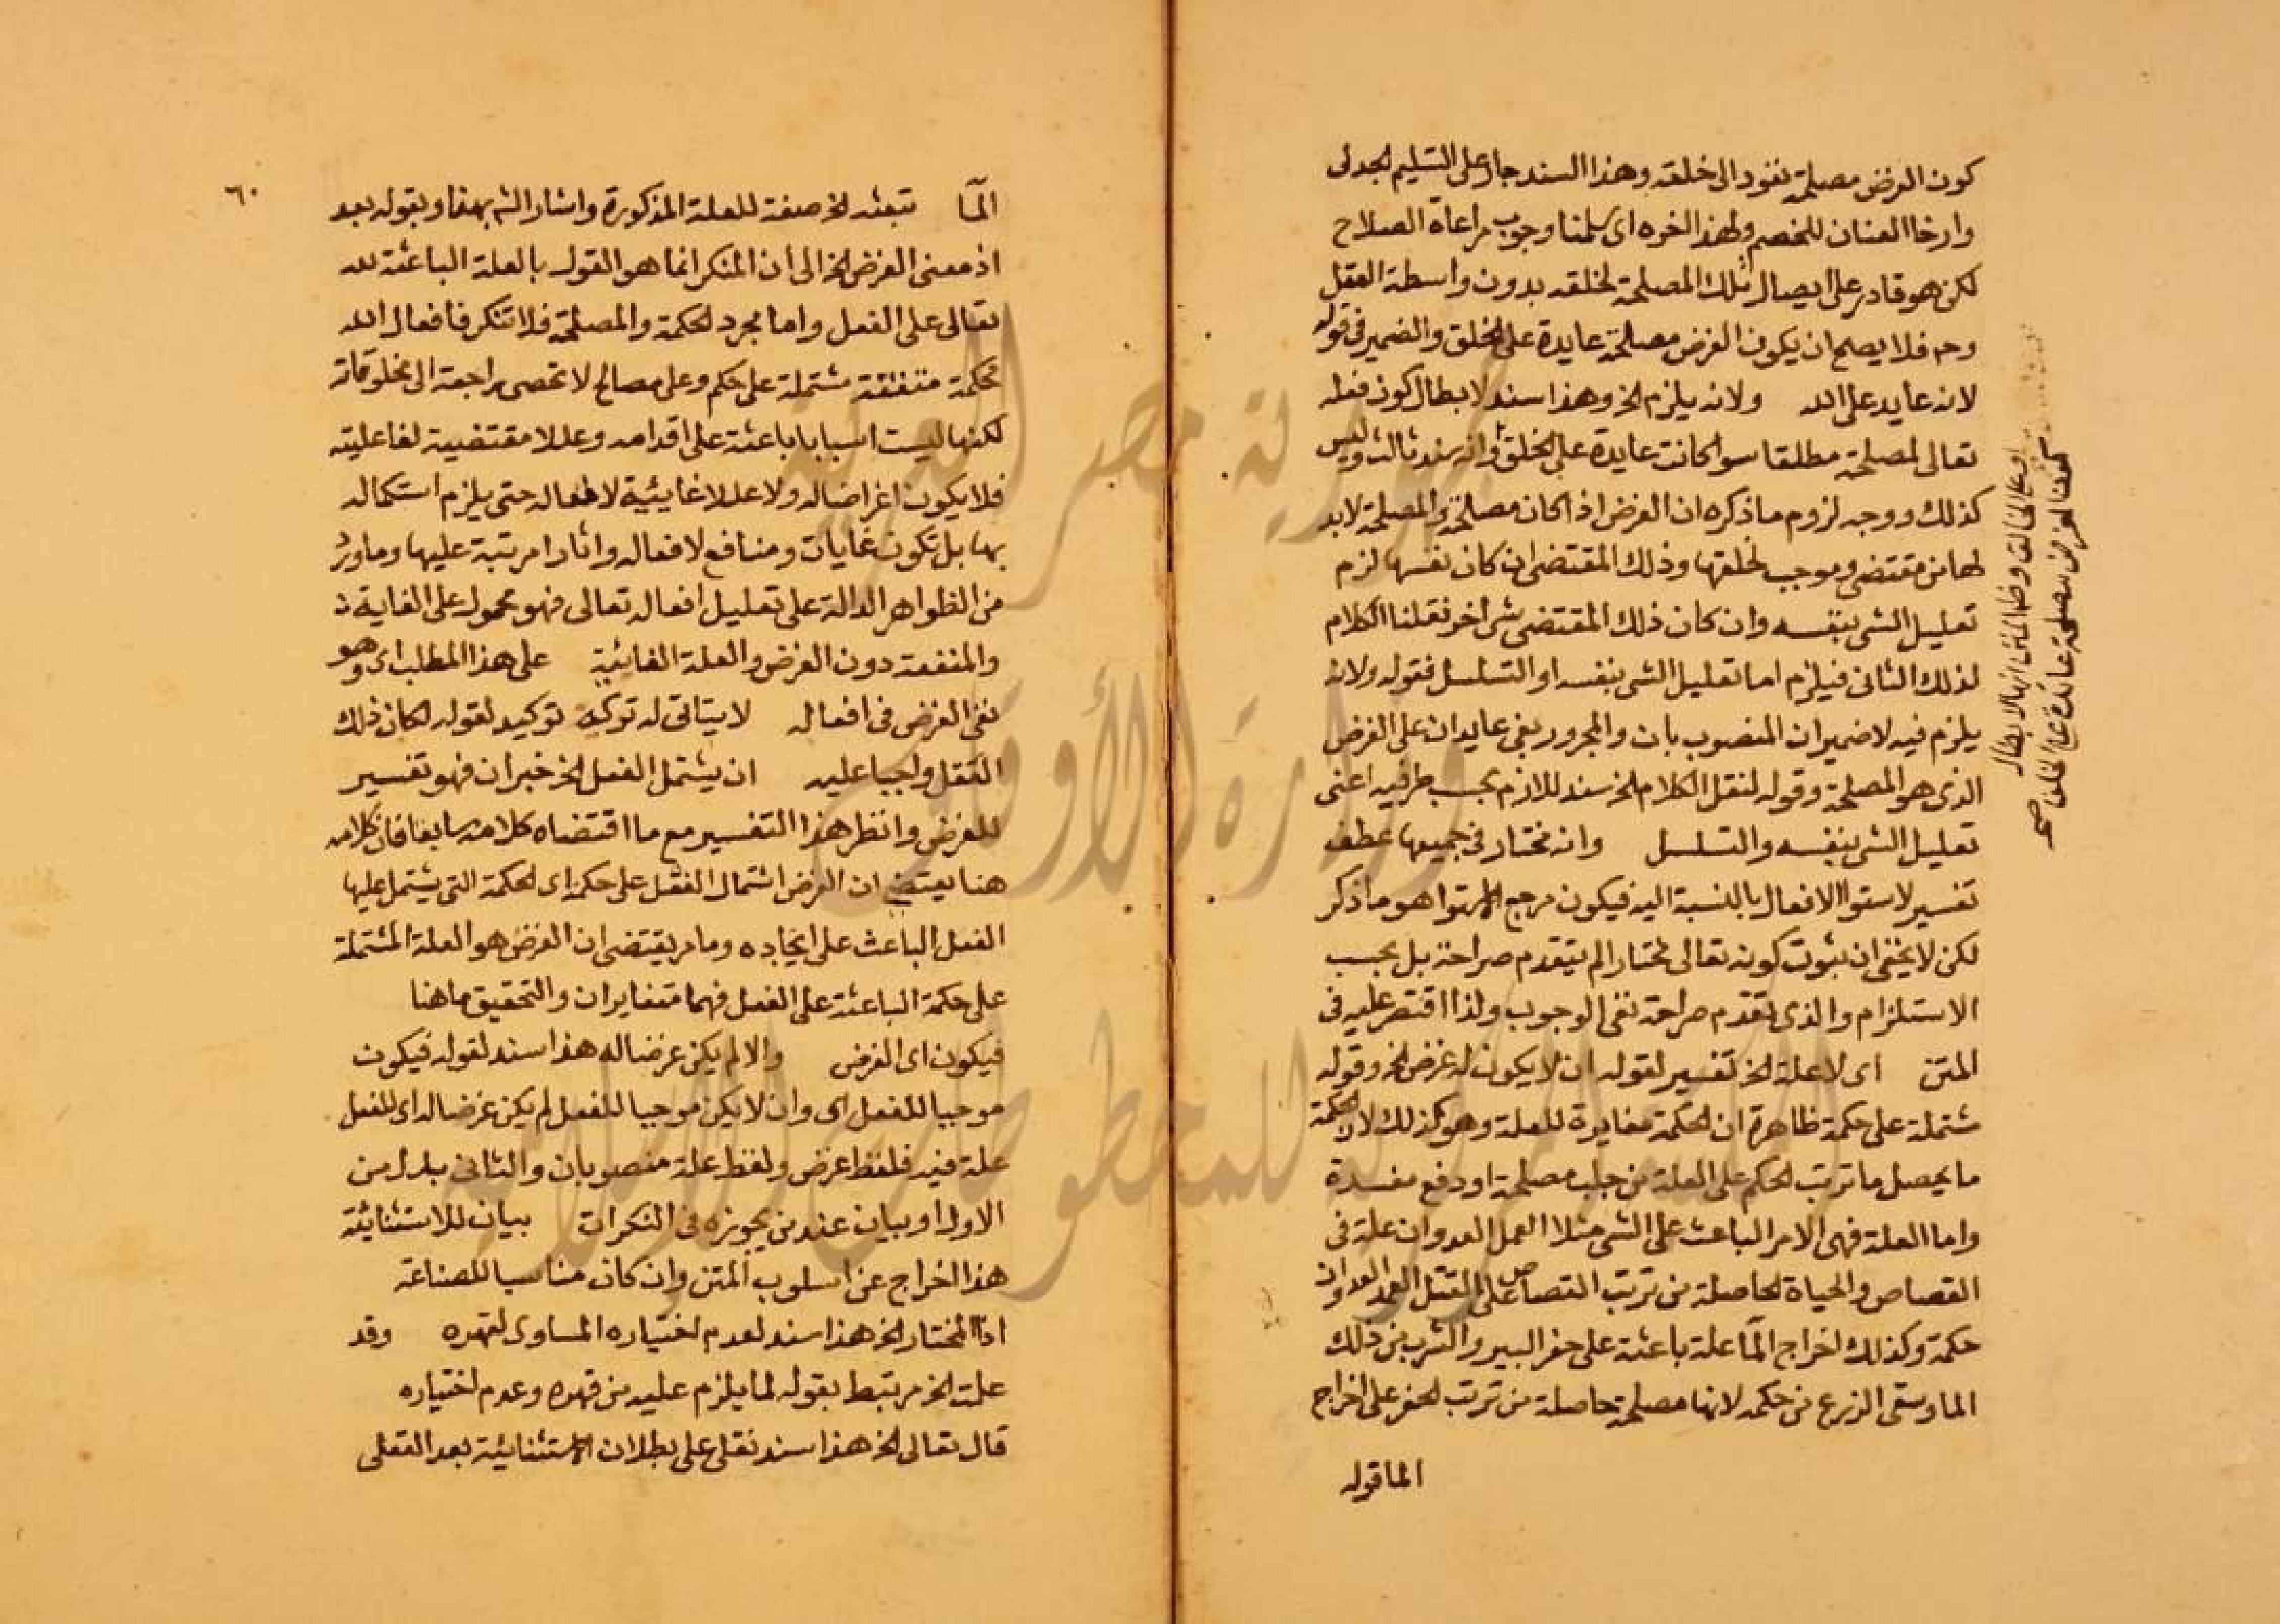 كون الغرض مصلحة تعود الى خلقه وهذا السند جار على التسليم الجدلى
وارخا العنان للخصم ولهذا اخره اى سلمنا وجوب مراعاة الصلاح
لكن هو قادر على ايصال تلك المصلحة لخلقه بدون واسطة الفعل
وح فلا يصح ان يكون الغرض مصلحة عايدة على الخلق والضمير فى قوله
لانه عايد على الله ولانه يلزم الخ وهذا سند لابطال كون فعله
تعالى لمصلحة مطلقا سوا كانت عايدة على الخلق وانه سند ثالث وليس
كذلك ووجه لزوم ما ذكره ان الغرض اذا كان مصلحة والمصلحة لا بد
لها من مقتضى وموجب لخلقها وذلك المقتضى ان كان نفسها لزم
تعليل الشى بنفسه وان كان ذلك المقتضى شى اخر نقلنا الكلام
لذلك الثانى فيلزم اما تعليل الشى بنفسه او التسلسل فقوله ولانه
يلزم فيه لا ضميران المنصوب بان والمجرور بفى عايدان على الغرض
الذى هو المصلحة وقوله لنقل الكلام الخ سند للازم بحسب طرفيه اعنى
تعليل الشى بنفسه والتسلسل وانه مختار فى جميعها عطف
تفسير لاستوا الافعال بالنسبة اليه فيكون مرجع الاستوا هو ما ذكر
لكن لا يخفى ان ثبوت كونه تعالى مختارا لم يتقدم صراحة بل بحسب
الاستلزام والذى تقدم صراحة نفى الوجوب ولذا اقتصر عليه فى
المتن اى لا علة الخ تفسير لقوله ان لا يكون له غرض الخ وقوله
مشتملة على حكمة ظاهره ان الحكمة مغايرة للعلة وهو كذلك لان الحكمة
ما يحصل ما ترتب الحكم على العلة من جلب مصلحة او دفع مفسدة
واما العلة فهى الامر الباعث على الشى مثلا العمل العدوان علة فى
القصاص والحياة الحاصلة من ترتب القصاص على القتل العمد العدوان
حكمة وكذلك اخراج المآ علة باعثة على حفر البير والشرب من ذلك
الما وسقى الزرع من حكمه لانها مصلحة حاصلة من ترتب الحفر على اخراج
الما قوله
او على الخالق وظاهر المتن انها لابطال
كون الغرض مصلحة عائدة على الخلق صح
٦٠
المآ تبعثه الخ صفة للعلة المذكورة واشار الشم بهذا وبقوله بعد
اذ معنى الغرض الخ الى ان المنكر انما هو القول بالعلة الباعثة لله
تعالى على الفعل واما مجرد الحكمة والمصلحة فلا تنكر فافعال الله
محكمة متقنة مشتملة على حكم وعلى مصالح لا تحصى راجعة الى مخلوقاته
لكنها ليست اسبابا باعثة على اقدامه وعللا مقتضية لفاعليته
فلا يكون اغراضا له ولا عللا غايئية لافعاله حتى يلزم استكماله
بها بل تكون غايات ومنافع لافعاله واثارا مرتبة عليها وما ورد
من الظواهر الدالة على تعليل افعاله تعالى فهو محمول على الغاية
والمنفعة دون الغرض والعلة الغايئية على هذا المطلب اى وهو
نفى الغرض فى افعاله لا يتاتى له تركه توكيد لقوله لكان ذلك
الفعل واجبا عليه ان يشتمل الفعل الخ خبران فهو تفسير
للغرض وانظر هذا التفسير مع ما اقتضاه كلامه سابقا فان كلامه
هنا يقتضى ان الغرض اشتمال الفعل على حكمة اى الحكمة التى يشتمل عليها
الفعل الباعث على ايجاده وما مر يقتضى ان الغرض هو العلة المشتملة
على حكمة الباعثة على الفعل فهما متغايران والتحقيق ما هنا
فيكون اى الغرض والا لم يكن غرضا له هذا سند لقوله فيكون
موجبا للفعل اى وان لا يكن موجبا للفعل لم يكن غرضا له اى للفعل
علة فيه فلفظ غرض ولفظ علة منصوبان والثانى بدل من
الاول او بيان عند من يجوزه فى النكرات بيان للاستثنائية
هذا اخراج عن اسلوب المتن وان كان مناسبا للصناعة
اذ المختار الخ هذا سند لعدم اختياره المساوى لقهره وقد
علمت الخ مرتبط بقوله لما يلزم عليه من قهره وعدم اختياره
قال تعالى الخ هذا سند نقلى على بطلان الاستثنائية بعد العقلى